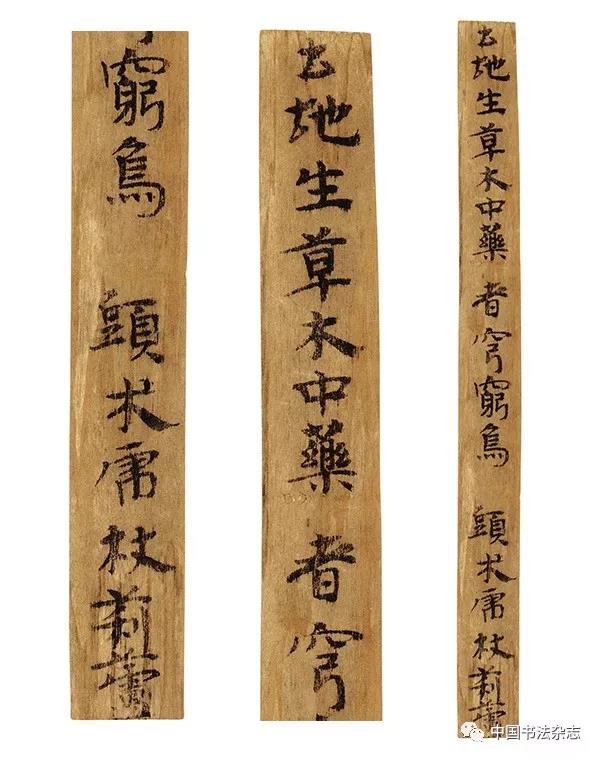 土地生草木中藥 者穹窮烏 頭朮庸杖
土地生草木中藥 者穹
窮烏 頭朮庸杖
中国书法杂志